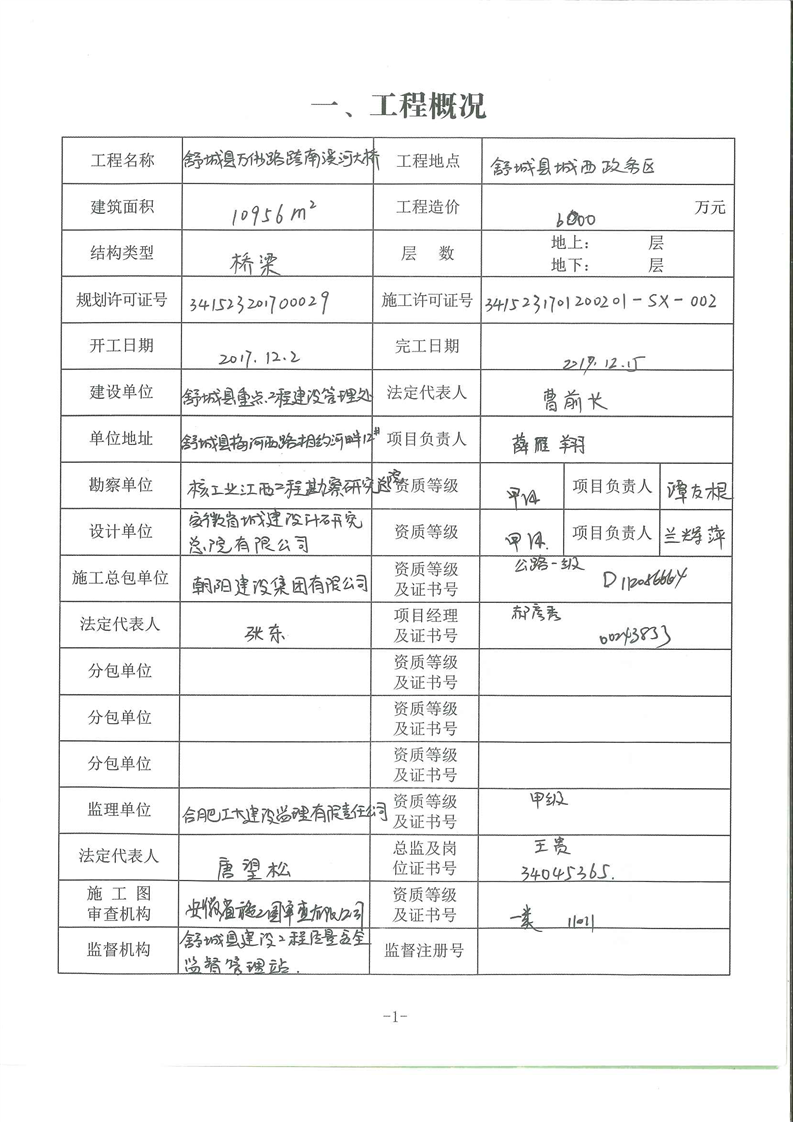 一、工程概况
工程名称 舒城县万佛路跨南溪河大桥 工程地点 舒城县城西政务区
建筑面积 10956m² 工程造价 6000 万元
结构类型 桥梁 层 数 地上: 层
地下: 层
规划许可证号 341523201700029 施工许可证号 3415231701200201-SX-002
开工日期 2017.12.2 完工日期 2017.12.15
建设单位 舒城县重点工程建设管理处 法定代表人 曹前长
单位地址 舒城县梅河西路相约河畔12# 项目负责人 薛雁翔
勘察单位 核工业江西工程勘察研究总院 资质等级 甲级 项目负责人 谭友根
设计单位 安徽省城建设计研究
总院有限公司 资质等级 甲级. 项目负责人 兰辉萍
施工总包单位 朝阳建设集团有限公司 资质等级
及证书号 公路一级 D112086664
法定代表人 张东 项目经理
及证书号 郝彦秀 00243833
分包单位 资质等级
及证书号
分包单位 资质等级
及证书号
分包单位 资质等级
及证书号
监理单位 合肥工大建设监理有限责任公司 资质等级
及证书号 甲级
法定代表人 唐望松 总监及岗
位证书号 王贵
34045365.
施 工 图
审查机构 安徽省施工图审查有限公司 资质等级
及证书号 一类 11011
监督机构 舒城县建设工程质量安全
监督管理站. 监督注册号
-1-